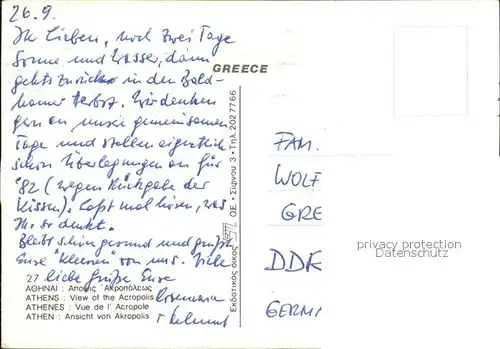 26.9.
Ihr Lieben, noch zwei Tage
Sonne und Wasser, dann
gehts zurück in den
Herbst. Wir denken
gern an unsre gemeinsamen
Tage und stellen eigentlich
schon Überlegungen an für
'82 (wegen Rückgabe der
Kissen). Laßt mal hören, was
Ihr so denkt.
Bleibt schön gesund und grüßt
Eure "Kleinen" von uns. Viele
liebe Grüße Eure
Rosemarie
+ Helmut
27
ΑΘΗΝΑΙ : Άποψις Ακροπόλεως
ATHENS : View of the Acropolis
ATHENES : Vue de l' Acropole
ATHEN : Ansicht von Akropolis
GREECE
Εκδοτικός οίκος ΟΕ. • Σίφνου 3 • Τηλ. 202 77 66
FAM.
WOLF
GRE
DDR
GERMA
privacy protection
Datenschutz